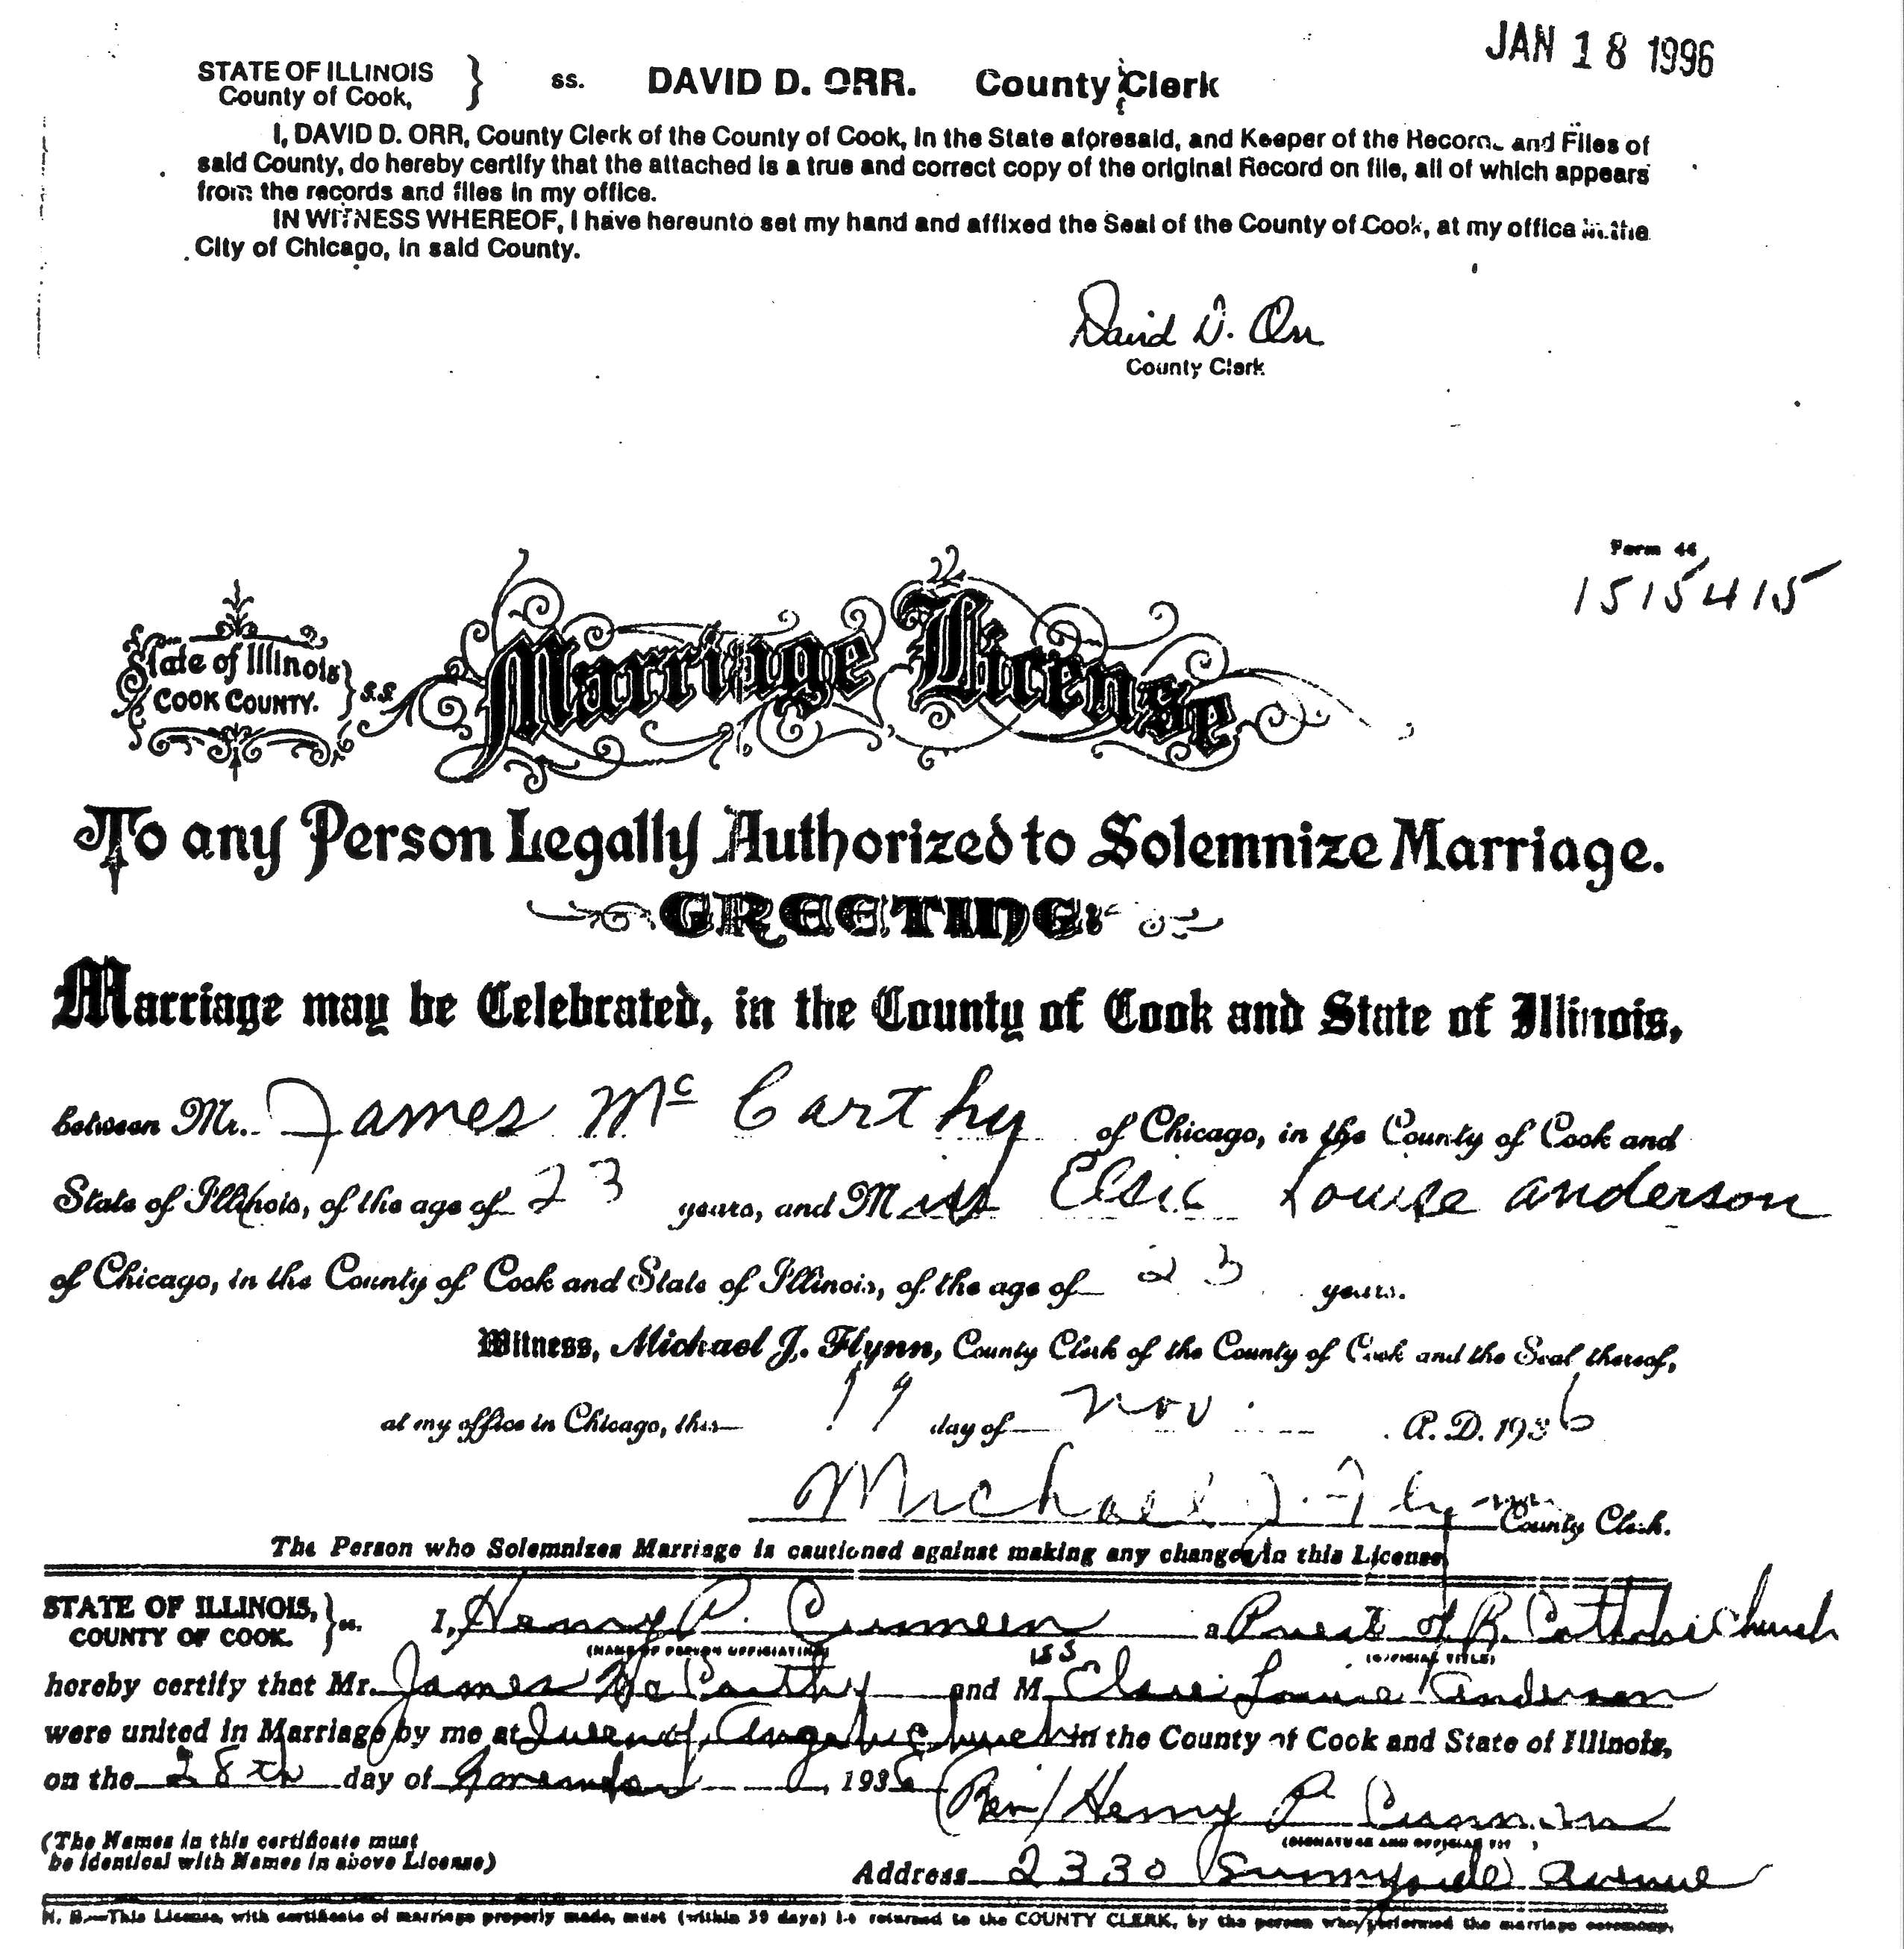 JAN 18 1996
STATE OF ILLINOIS } ss. DAVID D. ORR. County Clerk
County of Cook,
I, DAVID D. ORR, County Clerk of the County of Cook, in the State aforesaid, and Keeper of the Records and Files of
said County, do hereby certify that the attached is a true and correct copy of the original Record on file, all of which appears
from the records and files in my office.
IN WITNESS WHEREOF, I have hereunto set my hand and affixed the Seal of the County of Cook, at my office in the
City of Chicago, in said County.
David D. Orr
County Clerk
Form 44
1515415
State of Illinois } S.S.
COOK COUNTY.
Marriage License
To any Person Legally Authorized to Solemnize Marriage.
GREETING:
Marriage may be Celebrated, in the County of Cook and State of Illinois,
between Mr. James McCarthy of Chicago, in the County of Cook and
State of Illinois, of the age of 23 years, and Miss Elsie Louise Anderson
of Chicago, in the County of Cook and State of Illinois, of the age of 23 years.
Witness, Michael J. Flynn, County Clerk of the County of Cook and the Seal thereof,
at my office in Chicago, this 19 day of Nov. A.D. 1936
Michael J. Flynn County Clerk.
The Person who Solemnizes Marriage is cautioned against making any changes in this License
STATE OF ILLINOIS, } ss. I, Henry P. a Priest of R. Catholic Church
COUNTY OF COOK.
(NAME OF PERSON OFFICIATING) (OFFICIAL TITLE)
hereby certify that Mr. James McCarthy and Miss Elsie Louise Anderson
were united in Marriage by me at Queen of Angels Church in the County of Cook and State of Illinois,
on the 28th day of November 1936 (Rev) Henry P.
(SIGNATURE AND OFFICIAL TITLE)
(The Names in this certificate must
be identical with Names in above License)
Address 2330 Sunnyside Avenue
N. B.—This License, with certificate of marriage properly made, must (within 30 days) be returned to the COUNTY CLERK, by the person who performed the marriage ceremony.